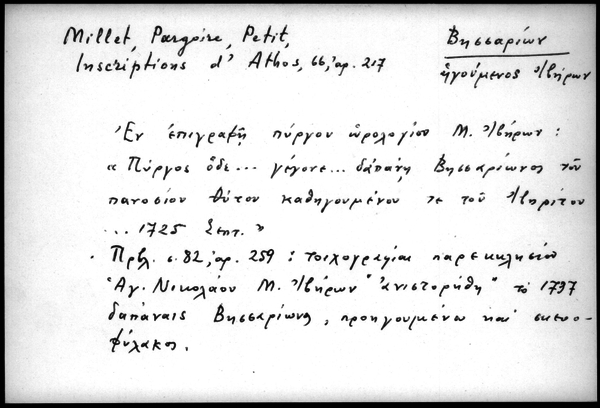 Millet, Pargoire, Petit,
Inscriptions d' Athos, 66, ἀρ. 217
Βησσαρίων
ἡγούμενος Ἰβήρων
Ἐν ἐπιγραφῇ πύργου ὡρολογίου Μ. Ἰβήρων :
« Πύργος ὅδε... γέγονε... δαπάνῃ Βησσαρίωνος τοῦ
πανοσίου θύτου καθηγουμένου τε τοῦ Ἰβηρίτου
... 1725 Σεπτ. »
Πρβλ. σ. 82, ἀρ. 259 : τοιχογραφίαι παρεκκλησίου
Ἁγ. Νικολάου Μ. Ἰβήρων "ἀνιστορήθη" τὸ 1737
δαπάναις Βησσαρίωνος, προηγουμένου καὶ σκευο-
φύλακος.